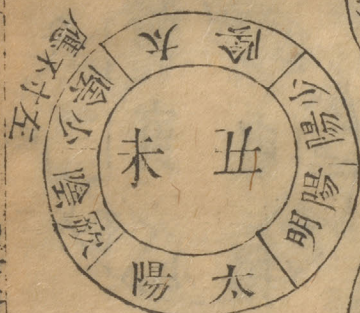 丑未
太陰
少陽
陽明
太陽
厥陰
少陰
左寸不應